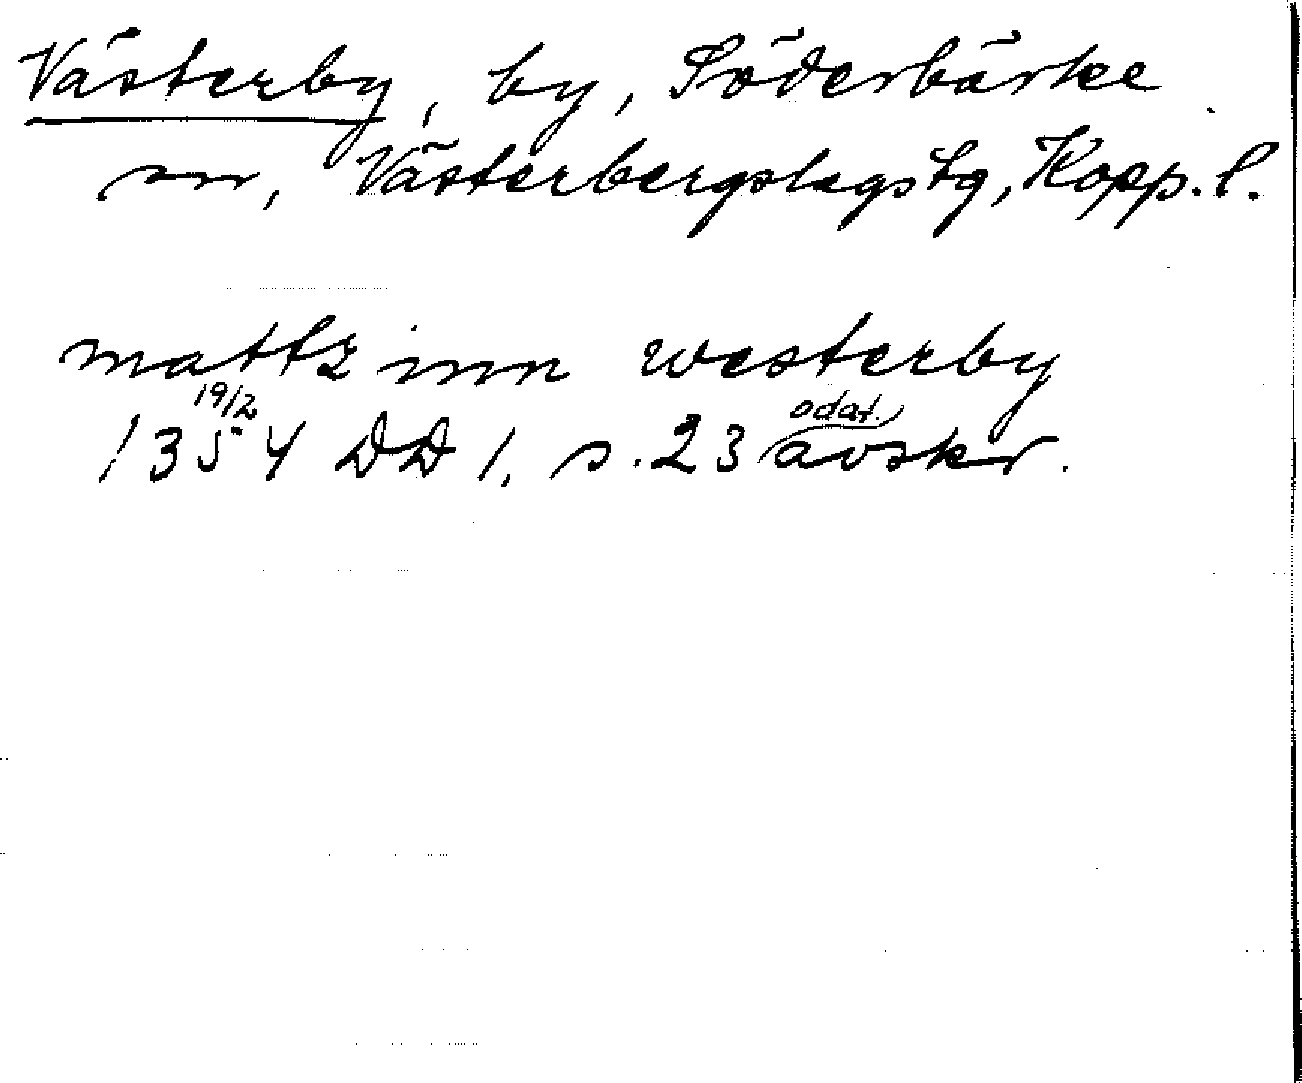 Västerby, by, Söderbärke
sn, Västerbergslags tg, Kopp. l.
mattz inn westerby
19/2 odat.
1354 DD 1, s. 23 avskr.